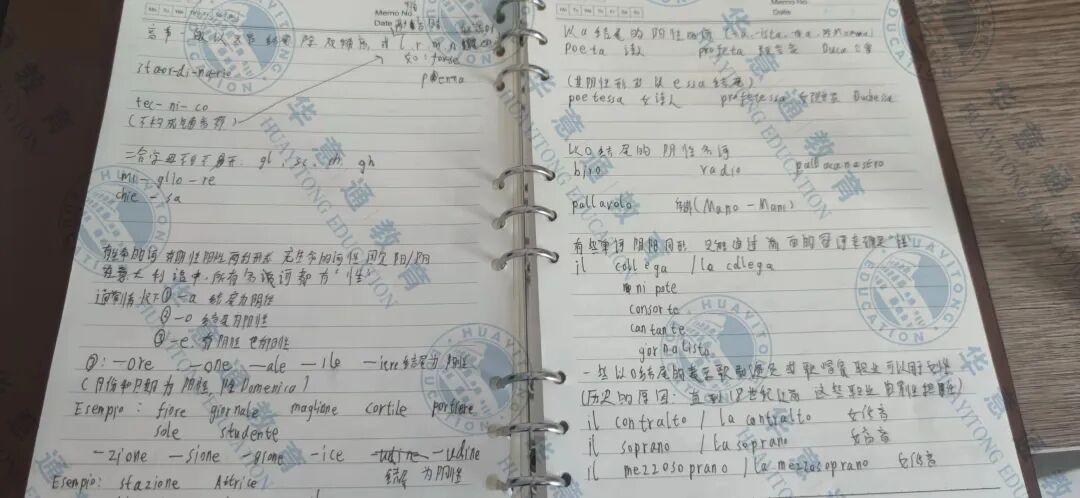 Memo No
Date
音节一般以元音结尾 除双辅音 或 l r m n
如: forse
staor-di-nario
tec-ni-co
二合字母不可分开: gl, sc, ch, gh
mi-glio-re
chie-sa
有生命的词 有阴性阳性两种形式
在意大利语中,所有名词都有"性"
通常情况下 ① -a 结尾为阴性
② -o 结尾为阳性
③ -e 有阴性 也有阳性
③: -ore -one -ale -ile -iere结尾为阳性
(月份和日期为阳性, 除Domenica)
Esempio: fiore giornale maglione cortile portiere
sole studente
-zione -sione -gione -ice -udine
结尾 为阴性
Esempio: stazione Attrice
Memo No
Date
以a结尾的阳性名词
Poeta 诗人 profeta 预言家 Duca 公爵
(其阴性形式以essa结尾)
poetessa 女诗人 profetessa 女预言家 Duchessa
以o结尾的阴性名词
biro radio pallacanestro
pallavolo (Mano - Mani)
有些单词阴阳同形 只能通过前面的冠词来确定"性"
il collega / la collega
nipote
consorte
cantante
giornalista
一些以o结尾的表示歌剧演员或歌唱家职业可以用于女性
(历史的原因: 直到18世纪
il contralto / la contralto 女低音
il soprano / la soprano 女高音
il mezzosoprano / la mezzosoprano 女中音
华意通教育
HUAYITONG EDUCATION